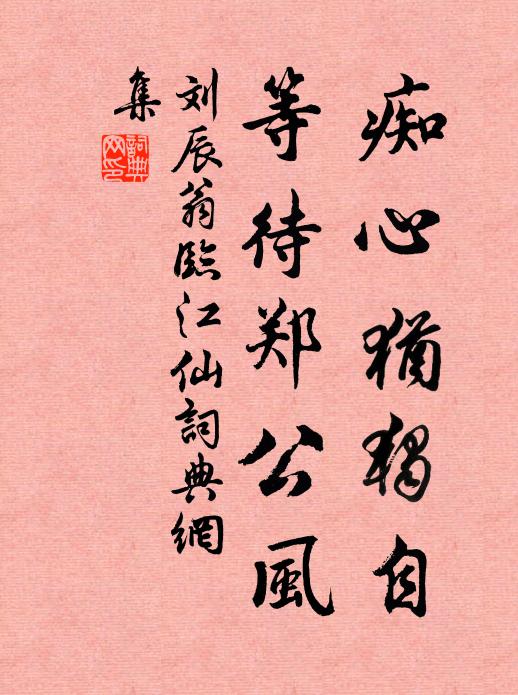 痴心犹獨自
等待郑公風
刘辰翁臨江仙詞典網
集
詞典
网印